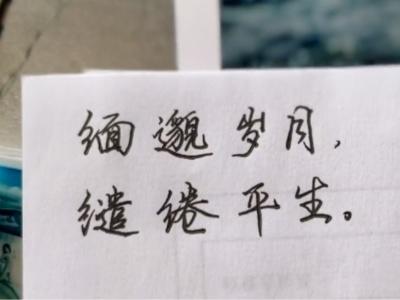 缅邈岁月，
缱绻平生。